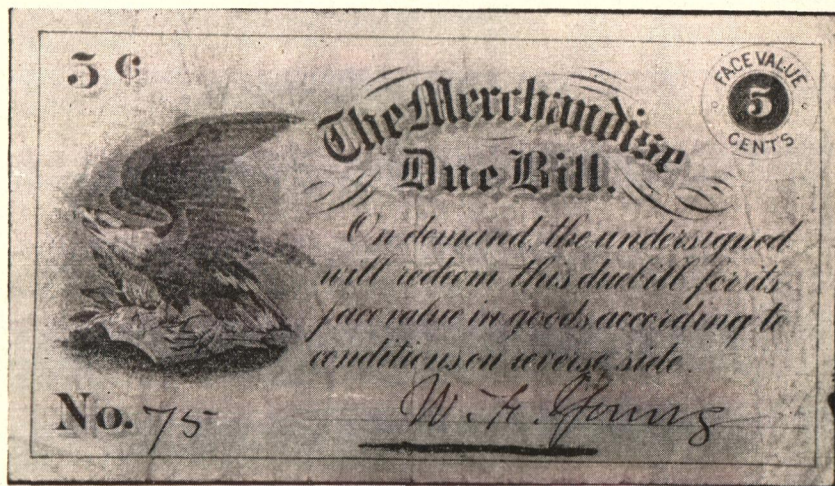 5¢
FACE VALUE
5
CENTS
The Merchandise
Due Bill.
On demand, the undersigned
will redeem this duebill for its
face value in goods according to
conditions on reverse side.
No. 75
W. H. Young